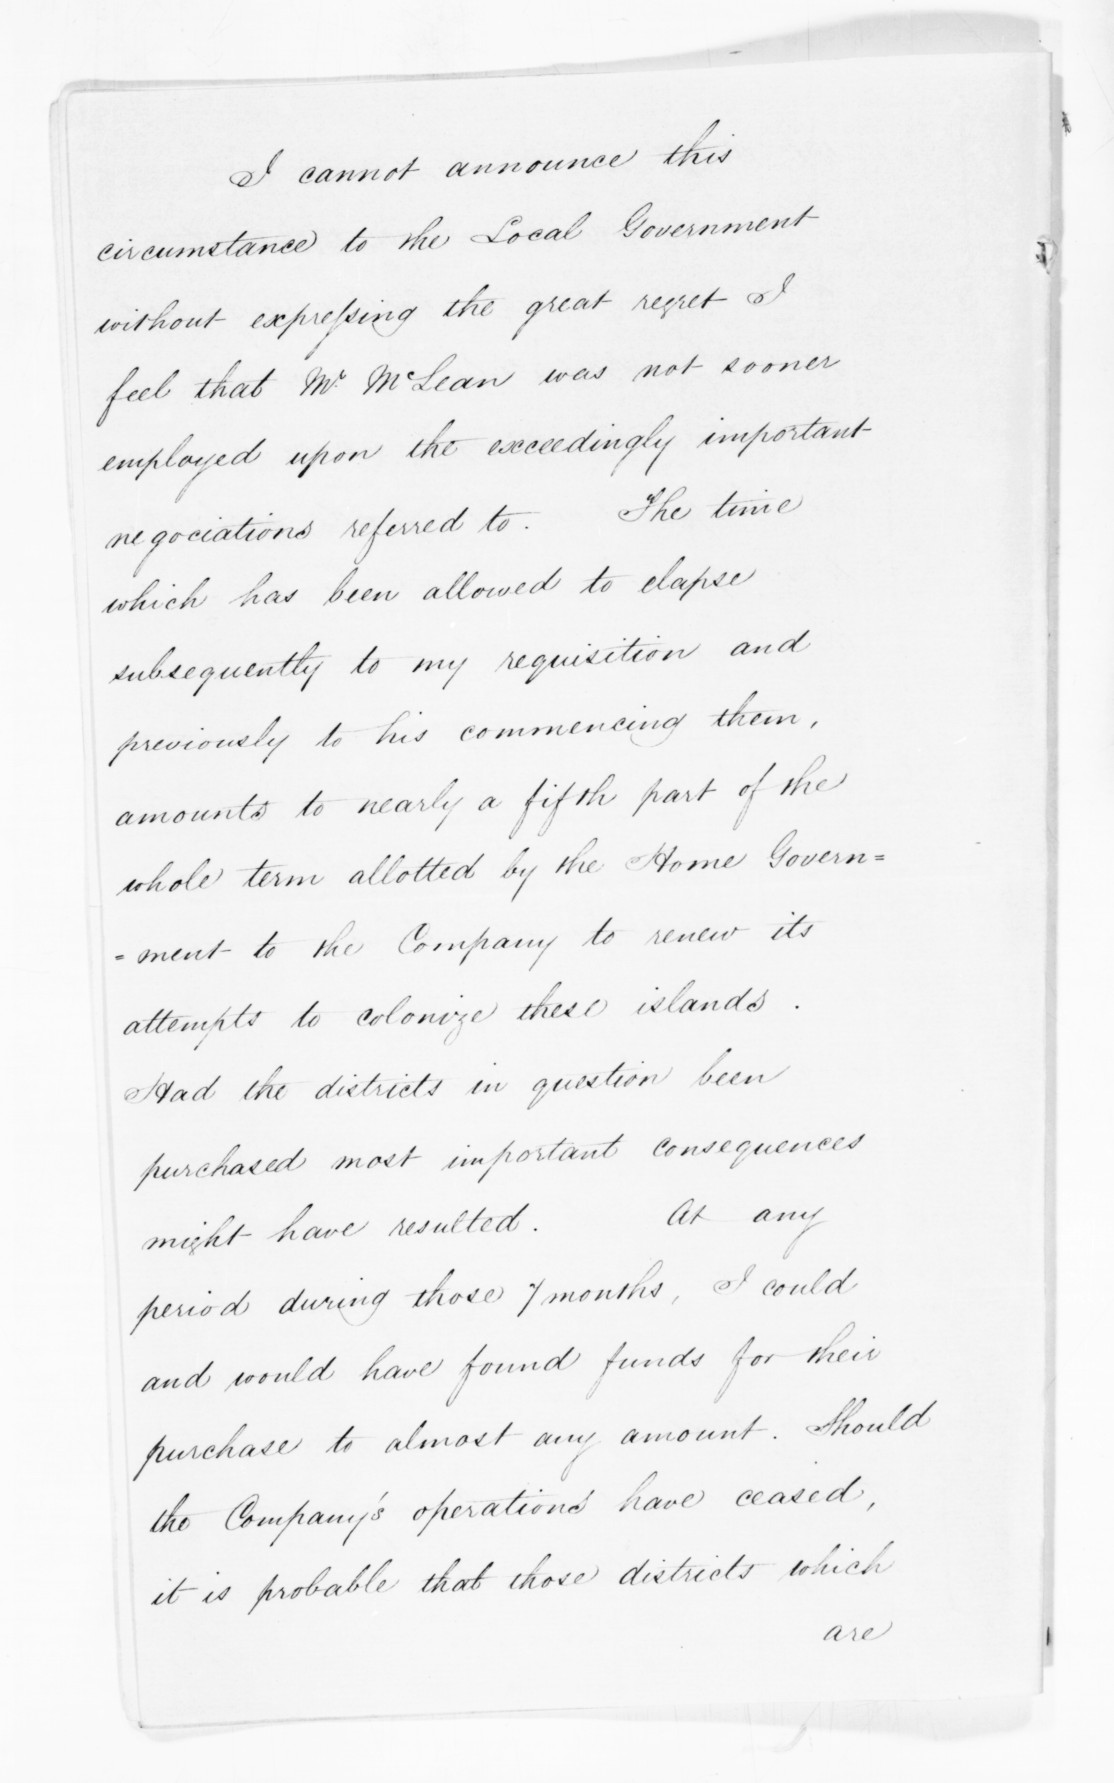 I cannot announce this
circumstance to the Local Government
without expreſsing the great regret I
feel that Mr. McLean was not sooner
employed upon the exceedingly important
negociations referred to. The time
which has been allowed to elapse
subsequently to my requisition and
previously to his commencing them,
amounts to nearly a fifth part of the
whole term allotted by the Home Govern=
=ment to the Company to renew its
attempts to colonize these islands.
Had the districts in question been
purchased most important consequences
might have resulted. At any
period during those 7 months, I could
and would have found funds for their
purchase to almost any amount. Should
the Company's operations have ceased,
it is probable that those districts which
are